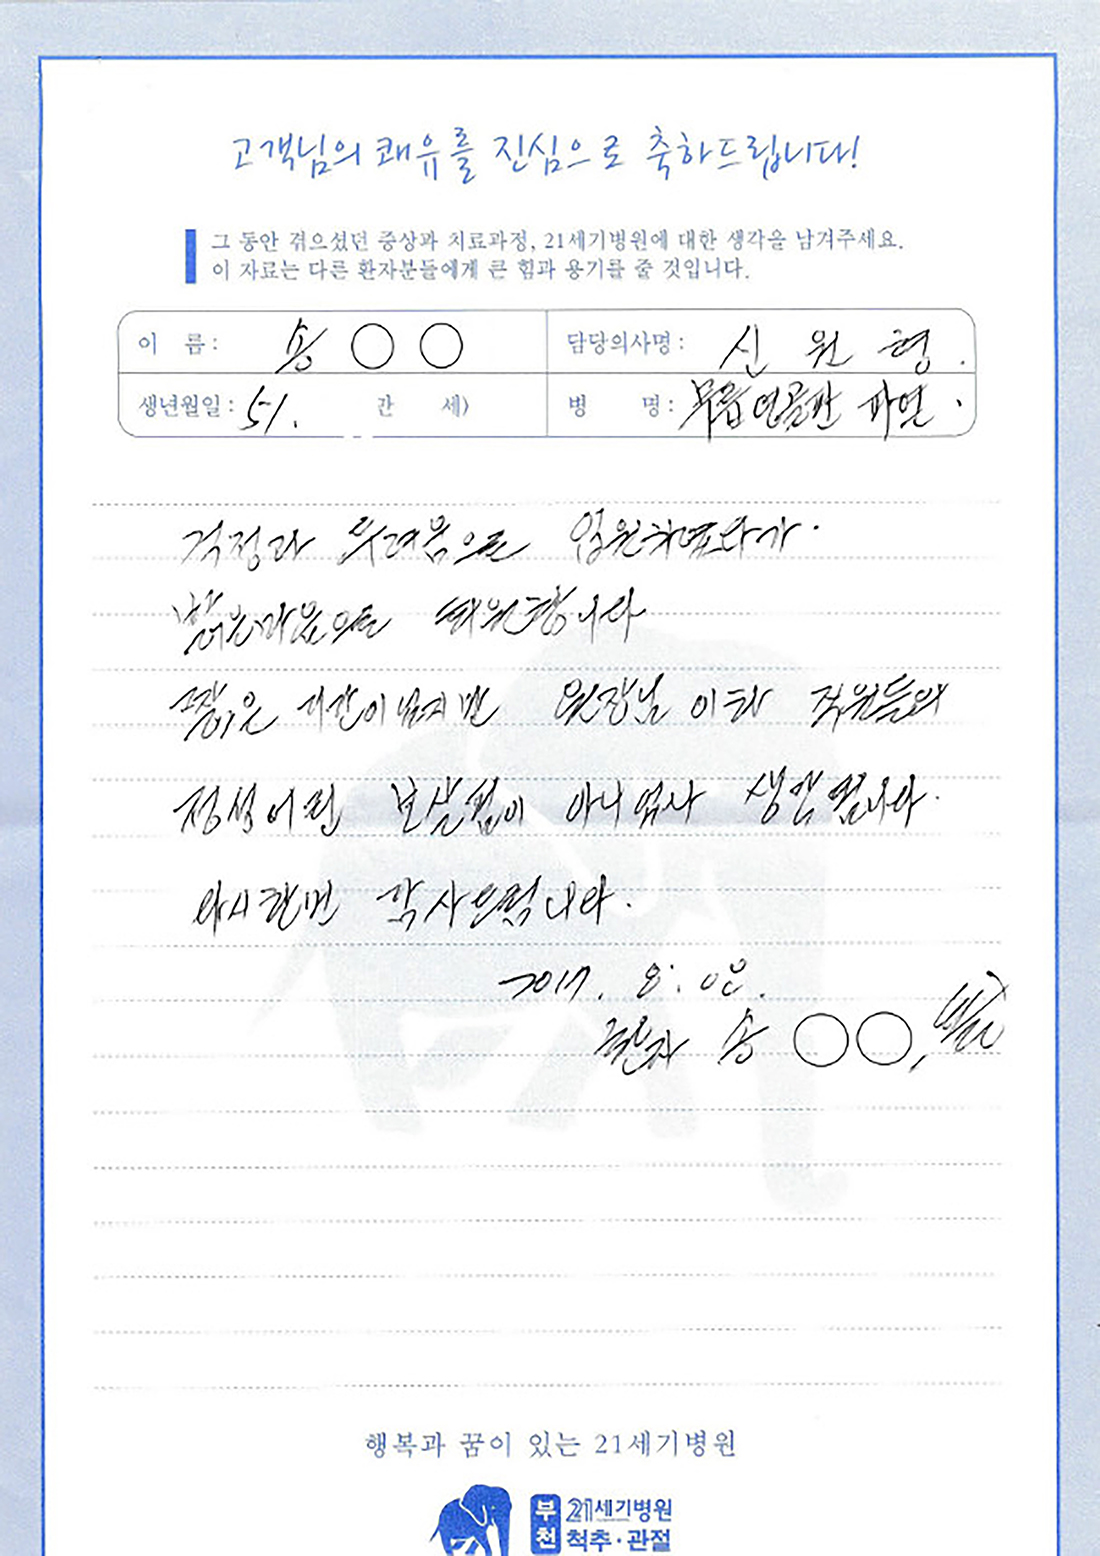 고객님의 쾌유를 진심으로 축하드립니다!
그 동안 겪으셨던 증상과 치료과정, 21세기병원에 대한 생각을 남겨주세요.
이 자료는 다른 환자분들에게 큰 힘과 용기를 줄 것입니다.
이 름 : 송 ○ ○ 담당의사명 : 신 원 형.
생년월일 : 51. 간 세) 병 명 : 무릎연골판 파열.
걱정과 두려움으로 입원하였다가.
밝은마음으로 퇴원합니다
짧은 기간이였지만 원장님 이하 직원들의
정성어린 보살핌이 아니였나 생각됩니다.
다시한번 감사드립니다.
2017. 8. 08.
환자 송 ○○.
행복과 꿈이 있는 21세기병원
부천 21세기병원
척추·관절